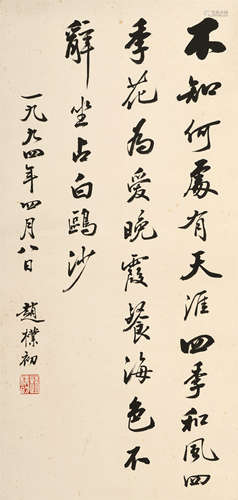 不知何處有天涯四季和風四
季花為愛晚霞餐海色不
辭坐占白鷗沙
一九九四年四月八日
趙樸初